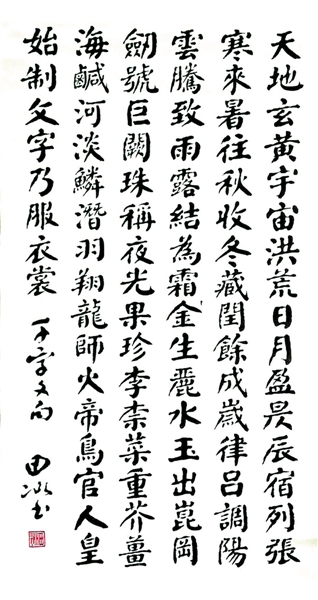 天地玄黃宇宙洪荒日月盈昃辰宿列張
寒來暑往秋收冬藏閏餘成歲律呂調陽
雲騰致雨露結為霜金生麗水玉出崑岡
劍號巨闕珠稱夜光果珍李柰菜重芥薑
海鹹河淡鱗潛羽翔龍師火帝鳥官人皇
始制文字乃服衣裳 千字文句 田冰书